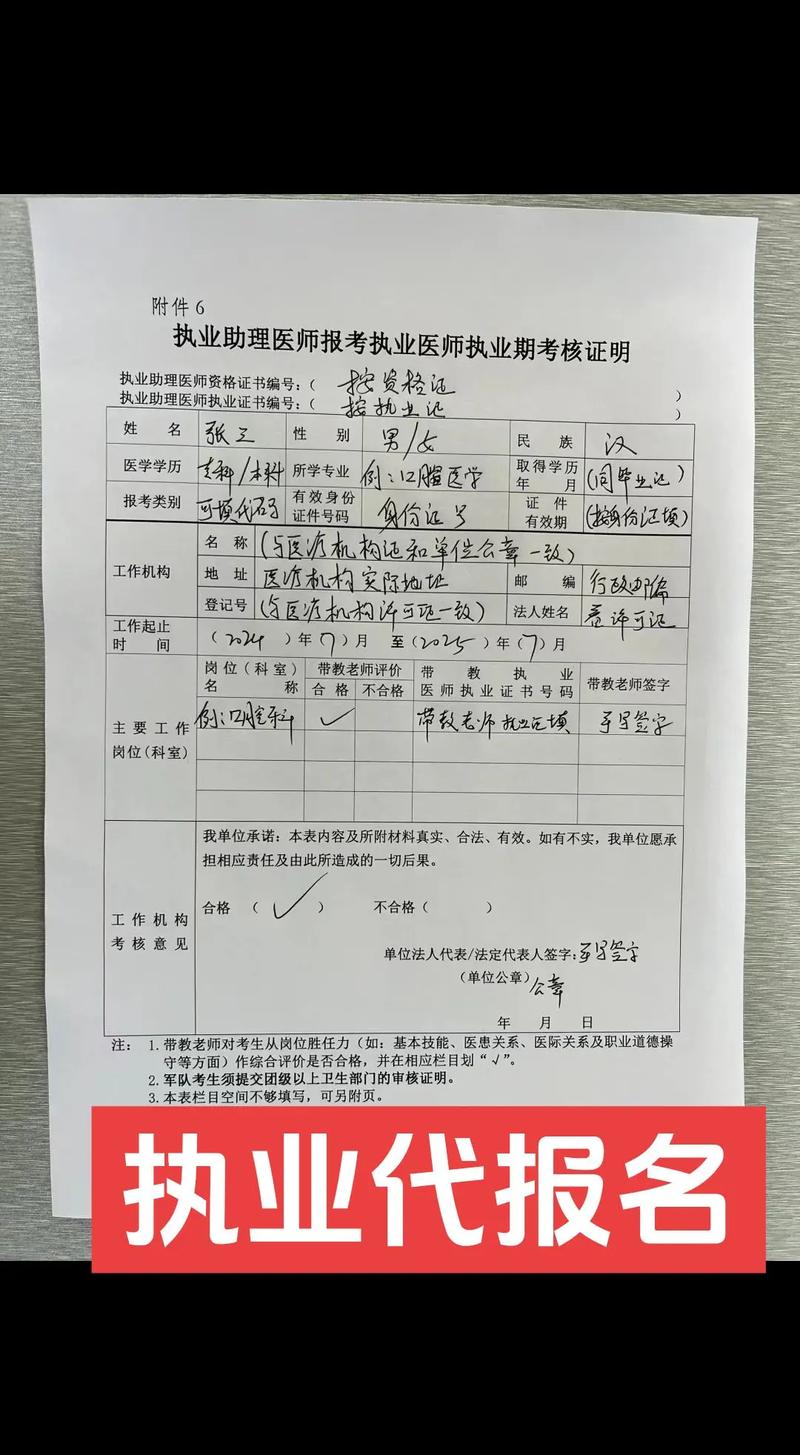 附件6
执业助理医师报考执业医师执业期考核证明
执业助理医师资格证书编号：（ 按资格证 ）
执业助理医师执业证书编号：（ 按执业证 ）
姓 名 张三 性 别 男/女 民 族 汉
医学学历 专科/本科 所学专业 例：口腔医学 取得学历年 月 (同毕业证)
报考类别 可填代码 有效身份证件号码 身份证号 证 件有效期 (按身份证填)
工作机构 名 称 (与医疗机构证和单位公章一致)
地 址 医疗机构实际地址 邮 编 行政邮编
登记号 (与医疗机构许可证一致) 法人姓名 看许可证
工作起止时 间 （2024 ）年（7）月 至（2025 ）年（7）月
主要工作岗位(科室) 岗位(科室)名 称 带教老师评价 带教执业医师执业证书号码 带教老师签字
合格 不合格
例：口腔科 ✓ 带教老师执业证填 手写签字
工作机构考核意见
我单位承诺：本表内容及所附材料真实、合法、有效。如有不实，我单位愿承
担相应责任及由此所造成的一切后果。
合格 （ ✓ ） 不合格（ ）
单位法人代表/法定代表人签字：手写签字
（单位公章） 公章
年 月 日
注： 1. 带教老师对考生从岗位胜任力（如：基本技能、医患关系、医际关系及职业道德操
守等方面）作综合评价是否合格，并在相应栏目划“√”。
2. 军队考生须提交团级以上卫生部门的审核证明。
3. 本表栏目空间不够填写，可另附页。
执业代报名